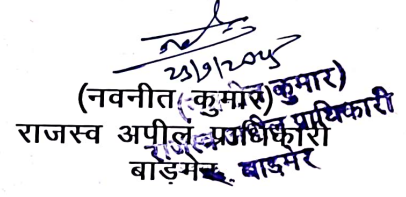 23/9/2025
(नवनीत कुमार)
राजस्व अपील प्राधिकारी
बाड़मेर
कुमार)
अपील प्राधिकारी
बाडमेर